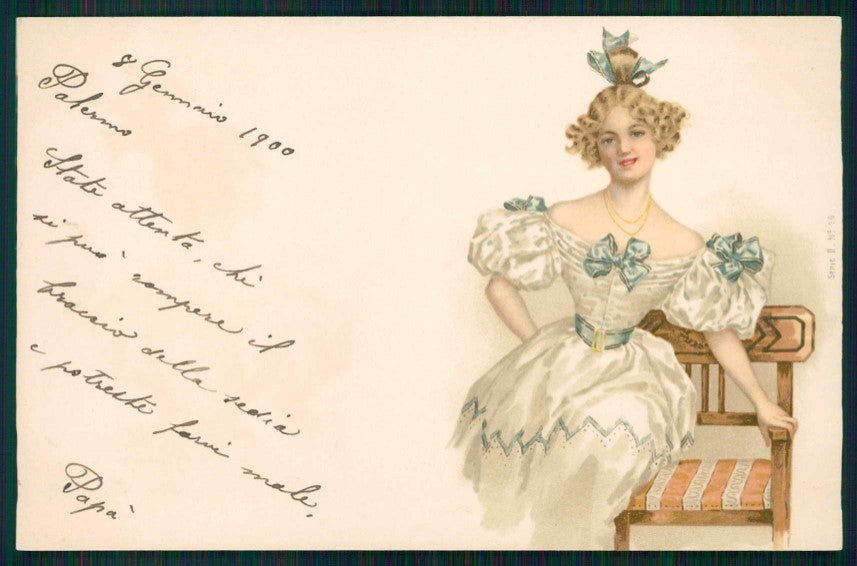 8 Gennaio 1900
Palermo
State attenta, chi
si può rompere il
braccio della sedia
e potreste farvi male.
Papà
Serie II. Nº 16